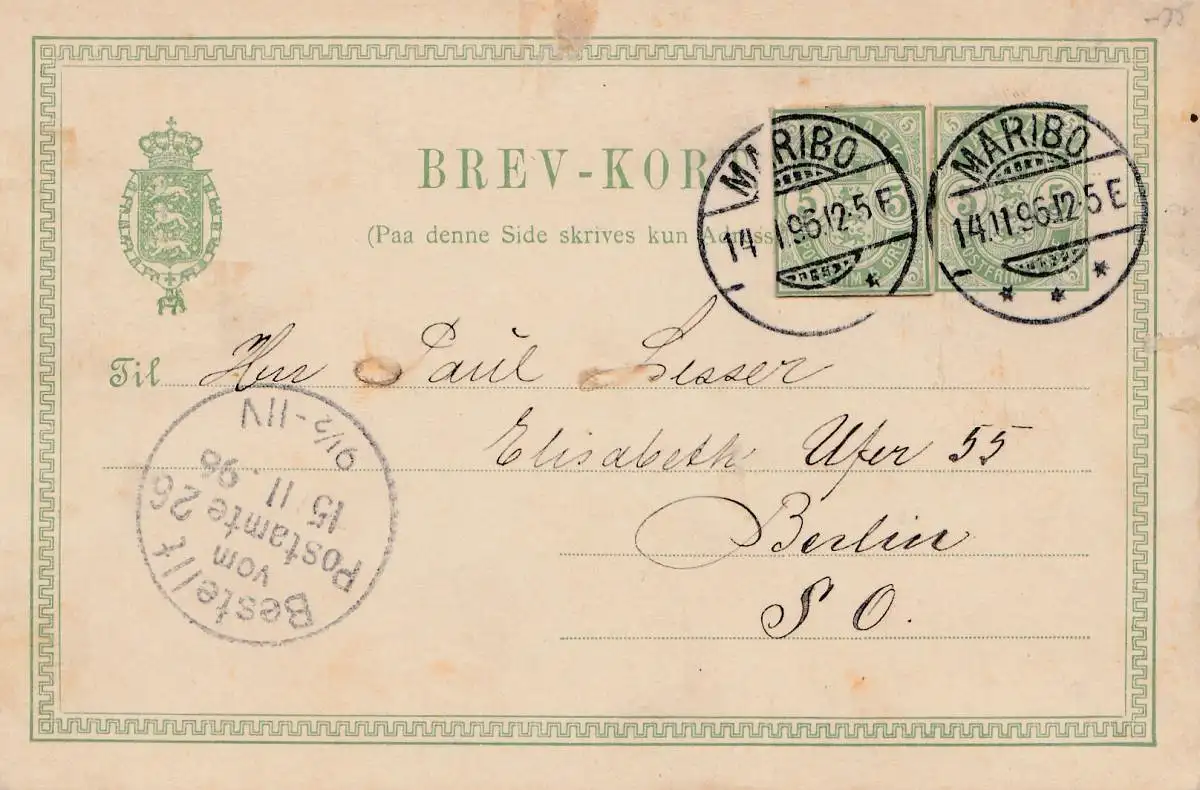 -35
BREV-KOR
(Paa denne Side skrives kun Adress
5 MARK 5
5 5
POSTFRIM ØRE
MARIBO
14 1.96.12-5 E
MARIBO
14.11.96.12-5 E
5 5
POSTFRIM
Til Herr Paul Lesser
Elisabeth Ufer 55
Berlin
S O.
Bestellt
vom
Postamte 26
15 11. 96
9 1/2 - 11 V